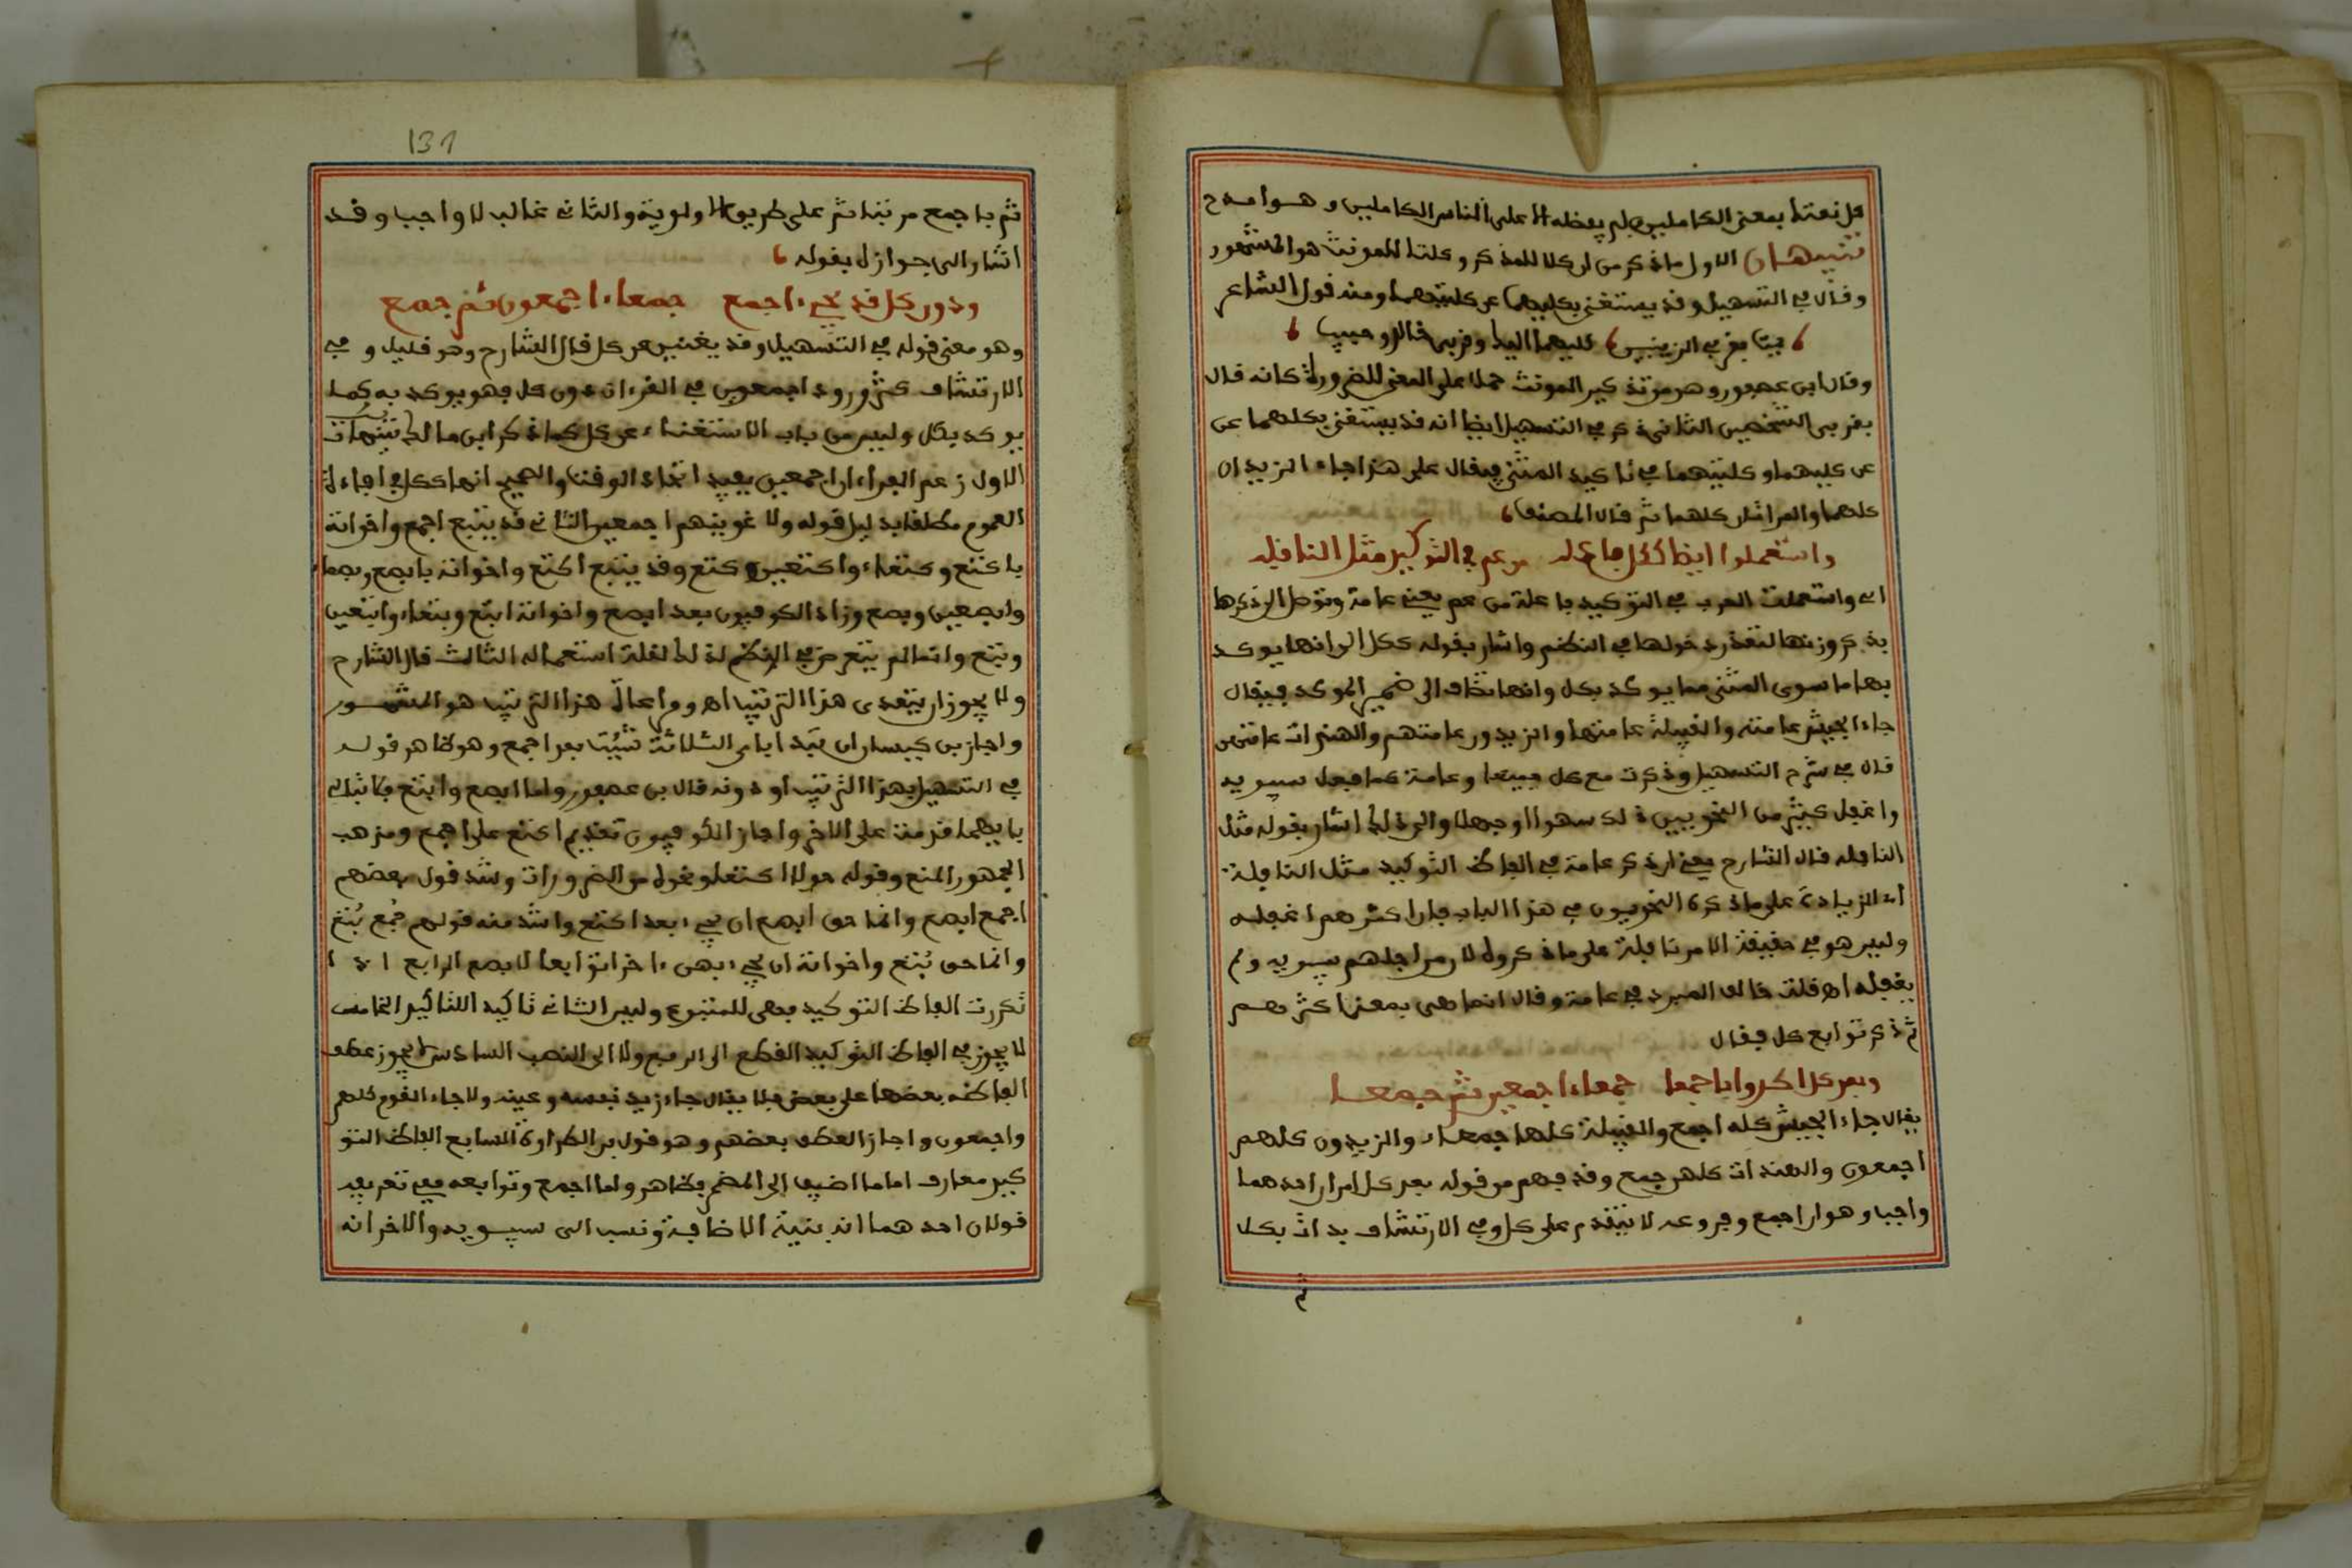 كل نعتا بمعنى الكاملين لم يفضله الا على الناس الكاملين وهو امدح
تنبيهان الاول ما ذكر من ان كلا للمذكر وكلتا للمونث هو المشهور
وقال في التسهيل وقد يستغنى بكليهما عن كلتيهما ومنه قول الشاعر
يمت بقربى الزينبين كليهما اليك وقربى خالد وحبيب
وقال ابن عصفور وهو من تذكير المونث حملا على المعنى للضرورة كانه قال
بقربى الشخصين الثاني ذكر في التسهيل ايضا انه قد يستغنى بكلهما عن
عن كليهما وكلتيهما في تاكيد المثنى فيقال على هذا جاء الزيدان
كلهما والمراتان كلهما ثم قال المصنف
واستعملوا ايضا ككل فاعله من عم في التوكيد مثل النافله
اي واستعملت العرب في التوكيد فاعلة من عم يعني عامة وتوصل الى ذكرها
بذكر وزنها لتعذر دخولها في النظم واشار بقوله ككل الى انها يوكد
بها ما سوى المثنى مما يوكد بكل وانها تضاف الى ضمير الموكد فيقال
جاء الجيش عامته والقبيلة عامتها والزيدون عامتهم والهندات عامتهن
قال في شرح التسهيل وذكرت مع كل جميعا وعامة كما فعل سيبويه
واغفل كثير من النحويين ذلك سهوا او جهلا والى ذلك اشار بقوله مثل
النافله قال الشارح يعني ان ذكر عامة في الفاظ التوكيد مثل النافلة
اي الزيادة على ما ذكره النحويون في هذا الباب فان اكثرهم اغفله
وليس هو في حقيقة الامر نافلة على ما ذكروه لان من اجلهم سيبويه ولم
يغفله اه قلت خالف المبرد في عامة وقال انما هي بمعنى اكثرهم
ثم ذكر توابع كل فقال
وبعد كل اكدوا باجمعا جمعاء اجمعين ثم جمعا
يقال جاء الجيش كله اجمع والقبيلة كلها جمعاء والزيدون كلهم
اجمعون والهندات كلهن جمع وقد فهم من قوله بعد كل امران احدهما
واجب وهو ان اجمع وفروعه لا يتقدم على كل وفي الارتشاف بدات بكلا
ثم
131
ثم باجمع مرتبا ثم على طريق الاولوية والثاني غالب لا واجب وقد
اشار الى جوازه بقوله
ودون كل قد يجيء اجمع جمعاء اجمعون ثم جمع
وهو معنى قوله في التسهيل وقد يغنين عن كل قال الشارح وهو قليل وفي
الارتشاف كثر ورود اجمعون في القرءان دون كل فهو يوكد به كما
يوكد بكل وليس من باب الاستغناء عن كل كما ذكر ابن مالك تنبيهات
الاول زعم الفراء ان اجمعين يفيد اتحاد الوقت والصحيح انها ككل في افادة
العموم مطلقا بدليل قوله ولاغوينهم اجمعين الثاني قد يتبع اجمع واخواته
باكتع وكتعاء واكتعين وكتع وقد يتبع اكتع واخواته بابصع وبصعاء
وابصعين وبصع وزاد الكوفيون بعد ابصع واخواته ابتع وبتعاء وابتعين
وبتع وانما لم يتعرض في النظم لذلك لقلة استعماله الثالث قال الشارح
ولا يجوز ان يتعدى هذا الترتيب اه وما عال هذا الترتيب هو المشهور
واجاز بن كيسان ان تبدا باي الثلاثة شيت بعد اجمع وهو ظاهر قوله
في التسهيل بهذا الترتيب او دونه قال بن عصفور واما ابصع وابتع فلا تبالي
بايهما قدمت على الاخر واجاز الكوفيون تقديم اكتع على اجمع ومذهب
الجمهور المنع وقوله حولا اكتعا ونحوه من الضرورات وشذ قول بعضهم
اجمع ابصع وانما حق ابصع ان يجيء بعد اكتع واشذ منه قولهم جُمع بُتع
وانما حق بُتع واخواته ان يجيء بهن ءاخرا توابعا لابصع الرابع اذا
تكررت الفاظ التوكيد فهي للمتبوع وليس الثاني تاكيدا للتاكيد الخامس
لا يجوز في الفاظ التوكيد القطع الى الرفع ولا الى النصب السادس لا يجوز عطف
الفاظه بعضها على بعض فلا يقال جاء زيد نفسه وعينه ولا جاء القوم كلهم
واجمعون واجاز العطف بعضهم وهو قول بن الطراوة السابع الفاظ التو
كيد معارف اما ما اضيف الى المضمر فظاهر واما اجمع وتوابعه ففي تعريفه
قولان احدهما انه بنية الاضافة ونسب الى سيبويه والاخر انه